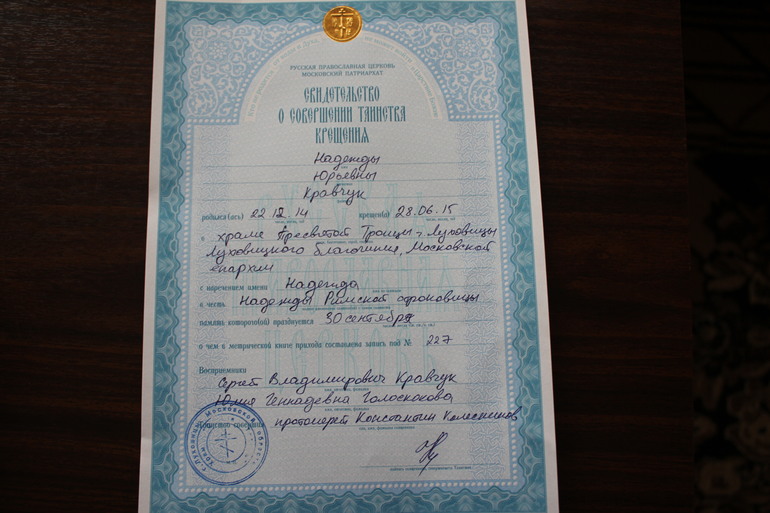 РУССКАЯ ПРАВОСЛАВНАЯ ЦЕРКОВЬ
МОСКОВСКИЙ ПАТРИАРХАТ
СВИДЕТЕЛЬСТВО
О СОВЕРШЕНИИ ТАИНСТВА
КРЕЩЕНИЯ
Надежды
Юрьевны
Кравчук
родился(ась) 22.12.14 крещен(а) 28.06.15
в храме Пресвятой Троицы г. Луховицы
Луховицкого благочиния, Московской
епархии
с наречением имени Надежда
в честь Надежды Римской отроковицы
память которого(ой) празднуется 30 сентября
о чем в метрической книге прихода составлена запись под № 227
Восприемники
Сергей Владимирович Кравчук
Юлия Геннадевна Голоскокова
Таинство совершил протоиерей Константин Колесников